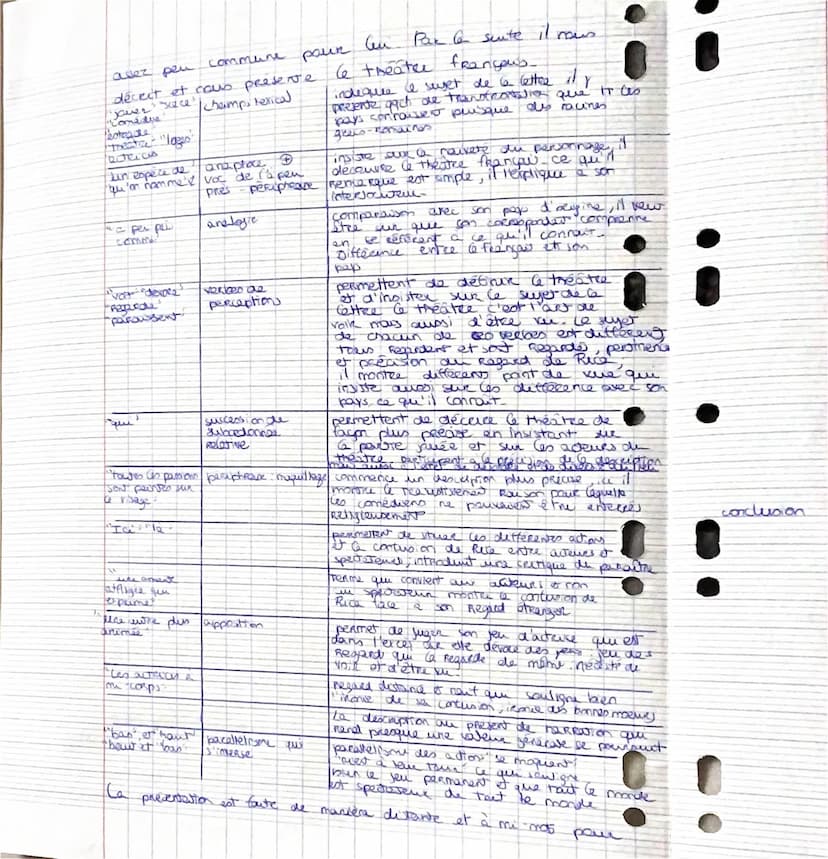 assez peu commune pour lui. Par la suite il nous
décrit et nous présente le théâtre français.
"jouer" "scène"
"comédie"
"théâtre" "loges"
actrices
champ lexical
indique le sujet de la lettre il y
présente qqch de que tt les
pays connaissent puisque des racines
gréco-romaines
"un espèce de"
qu'on nomme"
anaphore +
voc de l'à peu
près - périphrase
insiste sur la naïveté du personnage, il
découvre le théâtre français. ce qu'il
remarque est simple, il l'explique à son
interlocuteur
"à peu près
comme"
analogie
comparaison avec son pays d'origine, il veut
être sur que son correspondant comprenne
en se référant à ce qu'il connait.
Différence entre le français et son
pays
"voit"
"regarde"
"paraissent"
verbes de
perceptions
permettent de définir le théâtre
et d'insister sur le sujet de la
lettre le théâtre c'est l'art de
voir mais aussi d'être vu. Le sujet
de chacun de verbes est différent
tous regardent et sont regardés, pertinence
et précision du regard de Rica,
il montre différents point de vue qui
insiste aussi sur les différence avec son
pays, ce qu'il connait.
"qui"
succession de
subordonnée
relative
permettent de décrire le théâtre de
façon plus précise en insistant sur
la pièce jouée et sur les acteurs du
théâtre
"toutes les passions
sont peintes sur
le visage"
périphrase: maquillage
commence un description plus précise, ici il
montre le travestissement raison pour laquelle
les comédiens ne pouvaient être enterrés
religieusement
"Ici" "là"
permettent de situer les différentes actions
et la confusion de Rica entre acteurs et
spectateurs, introduit une critique du paraître
"une amante
affligée qui
exprime"
terme qui convient aux acteurs et non
au spectateur montre la confusion de
Rica face à son regard étranger
"une autre plus
animée"
apposition
permet de juger son jeu d'actrice qui est
dans l'excès car elle dévore des yeux jeu des
regards qui la regarde de même. de
voir et d'être vu.
"Les actrices à
mi-corps"
regard distancé et naïf qui souligne bien
l'ironie de sa confusion, ironie des bonnes moeurs
La description au présent de narration qui
rend presque une valeur générale se poursuit
"bas" et "haut"
"haut et bas"
parallélisme qui
s'inverse
parallélisme des actions "se moquent"
ce qui souligne
bien le jeu permanent et que tout le monde
est spectateur de tout le monde
La présentation est faite de manière distante et à mi-mots pour
conclusion